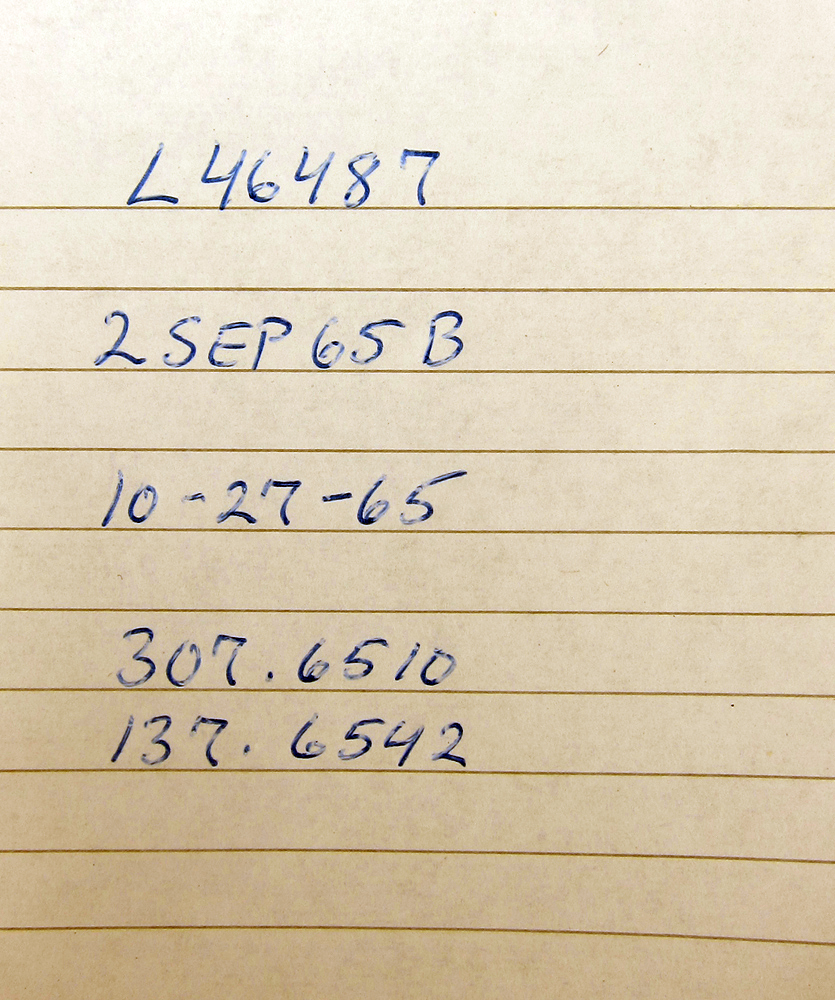 L 46487
2 SEP 65 B
10-27-65
307.6510
137.6542